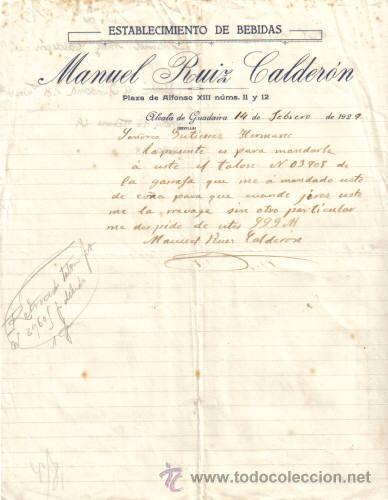 ESTABLECIMIENTO DE BEBIDAS
Manuel Ruiz Calderón
Plaza de Alfonso XIII núms. 11 y 12
Alcala de Guadaira 14 de Febrero de 1929.
(SEVILLA)
Señores Gutierrez Hermanos
La presente es para mandarle
a uste el talon N 03908 de
la garrafa que me a mandado uste
de para que cuando uste
me la sin otro particular
me despido de utes
Manuel Ruiz Calderon
www.todocoleccion.net